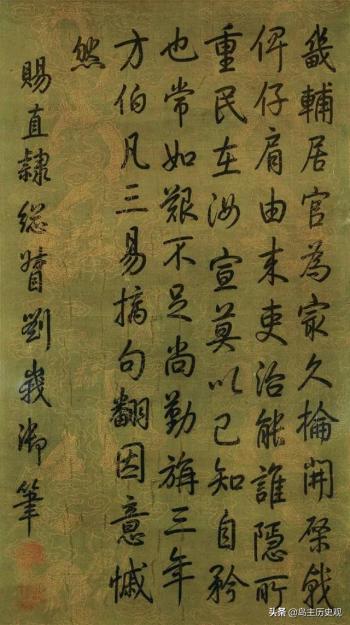 畿輔居官為冣久掄開棨戟
俾仔肩由来吏治能誰隱所
重民在汝宣莫以已知自矜
也常如艱不足尚勤旃三年
方伯凡三易摛句翻因意慽
然
賜直隸總督劉峩御筆
头条 @岛主历史观